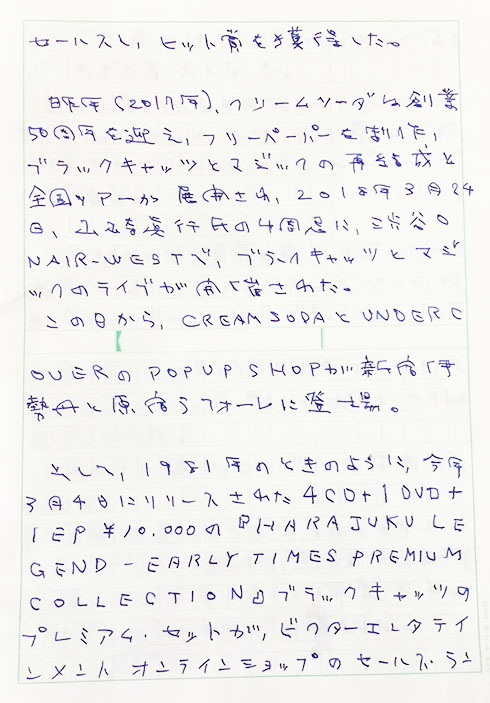 セールスし、ヒット賞を獲得した。
昨年（2017年）、クリームソーダは創業
50周年を迎え、フリーペーパーを制作、
ブラックキャッツとマジックの再結成と
全国ツアーが展開され、2018年3月24
日、山崎眞行氏の4周忌に、渋谷O
NAIR-WESTで、ブラックキャッツとマジ
ックのライブが開催された。
この日から、CREAMSODAとUNDERC
OVERのPOPUPSHOPが新宿伊
勢丹と原宿ラフォーレに登場。
そして、1981年のときのように、今年
3月4日にリリースされた4CD+1DVD+
1EP¥10.000の『HARAJUKULE
GEND-EARLYTIMESPREMIUM
COLLECTION』ブラックキャッツの
プレミアム・セットが、ビクターエンタテイ
ンメントオンラインショップのセールス・ラン